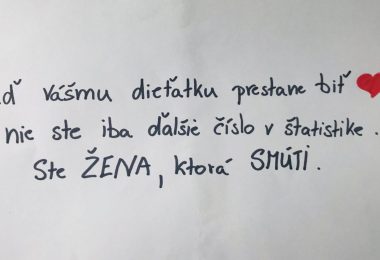 ď vášmu dieťatku prestane biť ❤
nie ste iba ďalšie číslo v štatistike.
Ste ŽENA, ktorá SMÚTI.